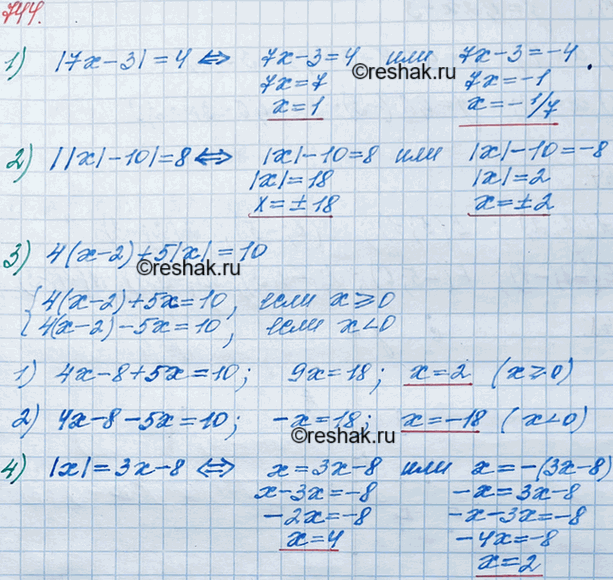 744.
1) |7x-3|=4 ⇔ 7x-3=4 или 7x-3=-4.
7x=7 7x=-1
©reshak.ru
x=1 x=-1/7
2) ||x|-10|=8 ⇔ |x|-10=8 или |x|-10=-8
|x|=18 |x|=2
x=±18 x=±2
3) 4(x-2)+5|x|=10
©reshak.ru
{4(x-2)+5x=10, если x≥0
4(x-2)-5x=10, если x<0
1) 4x-8+5x=10; 9x=18; x=2 (x≥0)
2) 4x-8-5x=10; -x=18; x=-18 (x<0)
©reshak.ru
4) |x|=3x-8 ⇔ x=3x-8 или x=-(3x-8)
x-3x=-8 -x=3x-8
-2x=-8 -x-3x=-8
x=4 -4x=-8
x=2